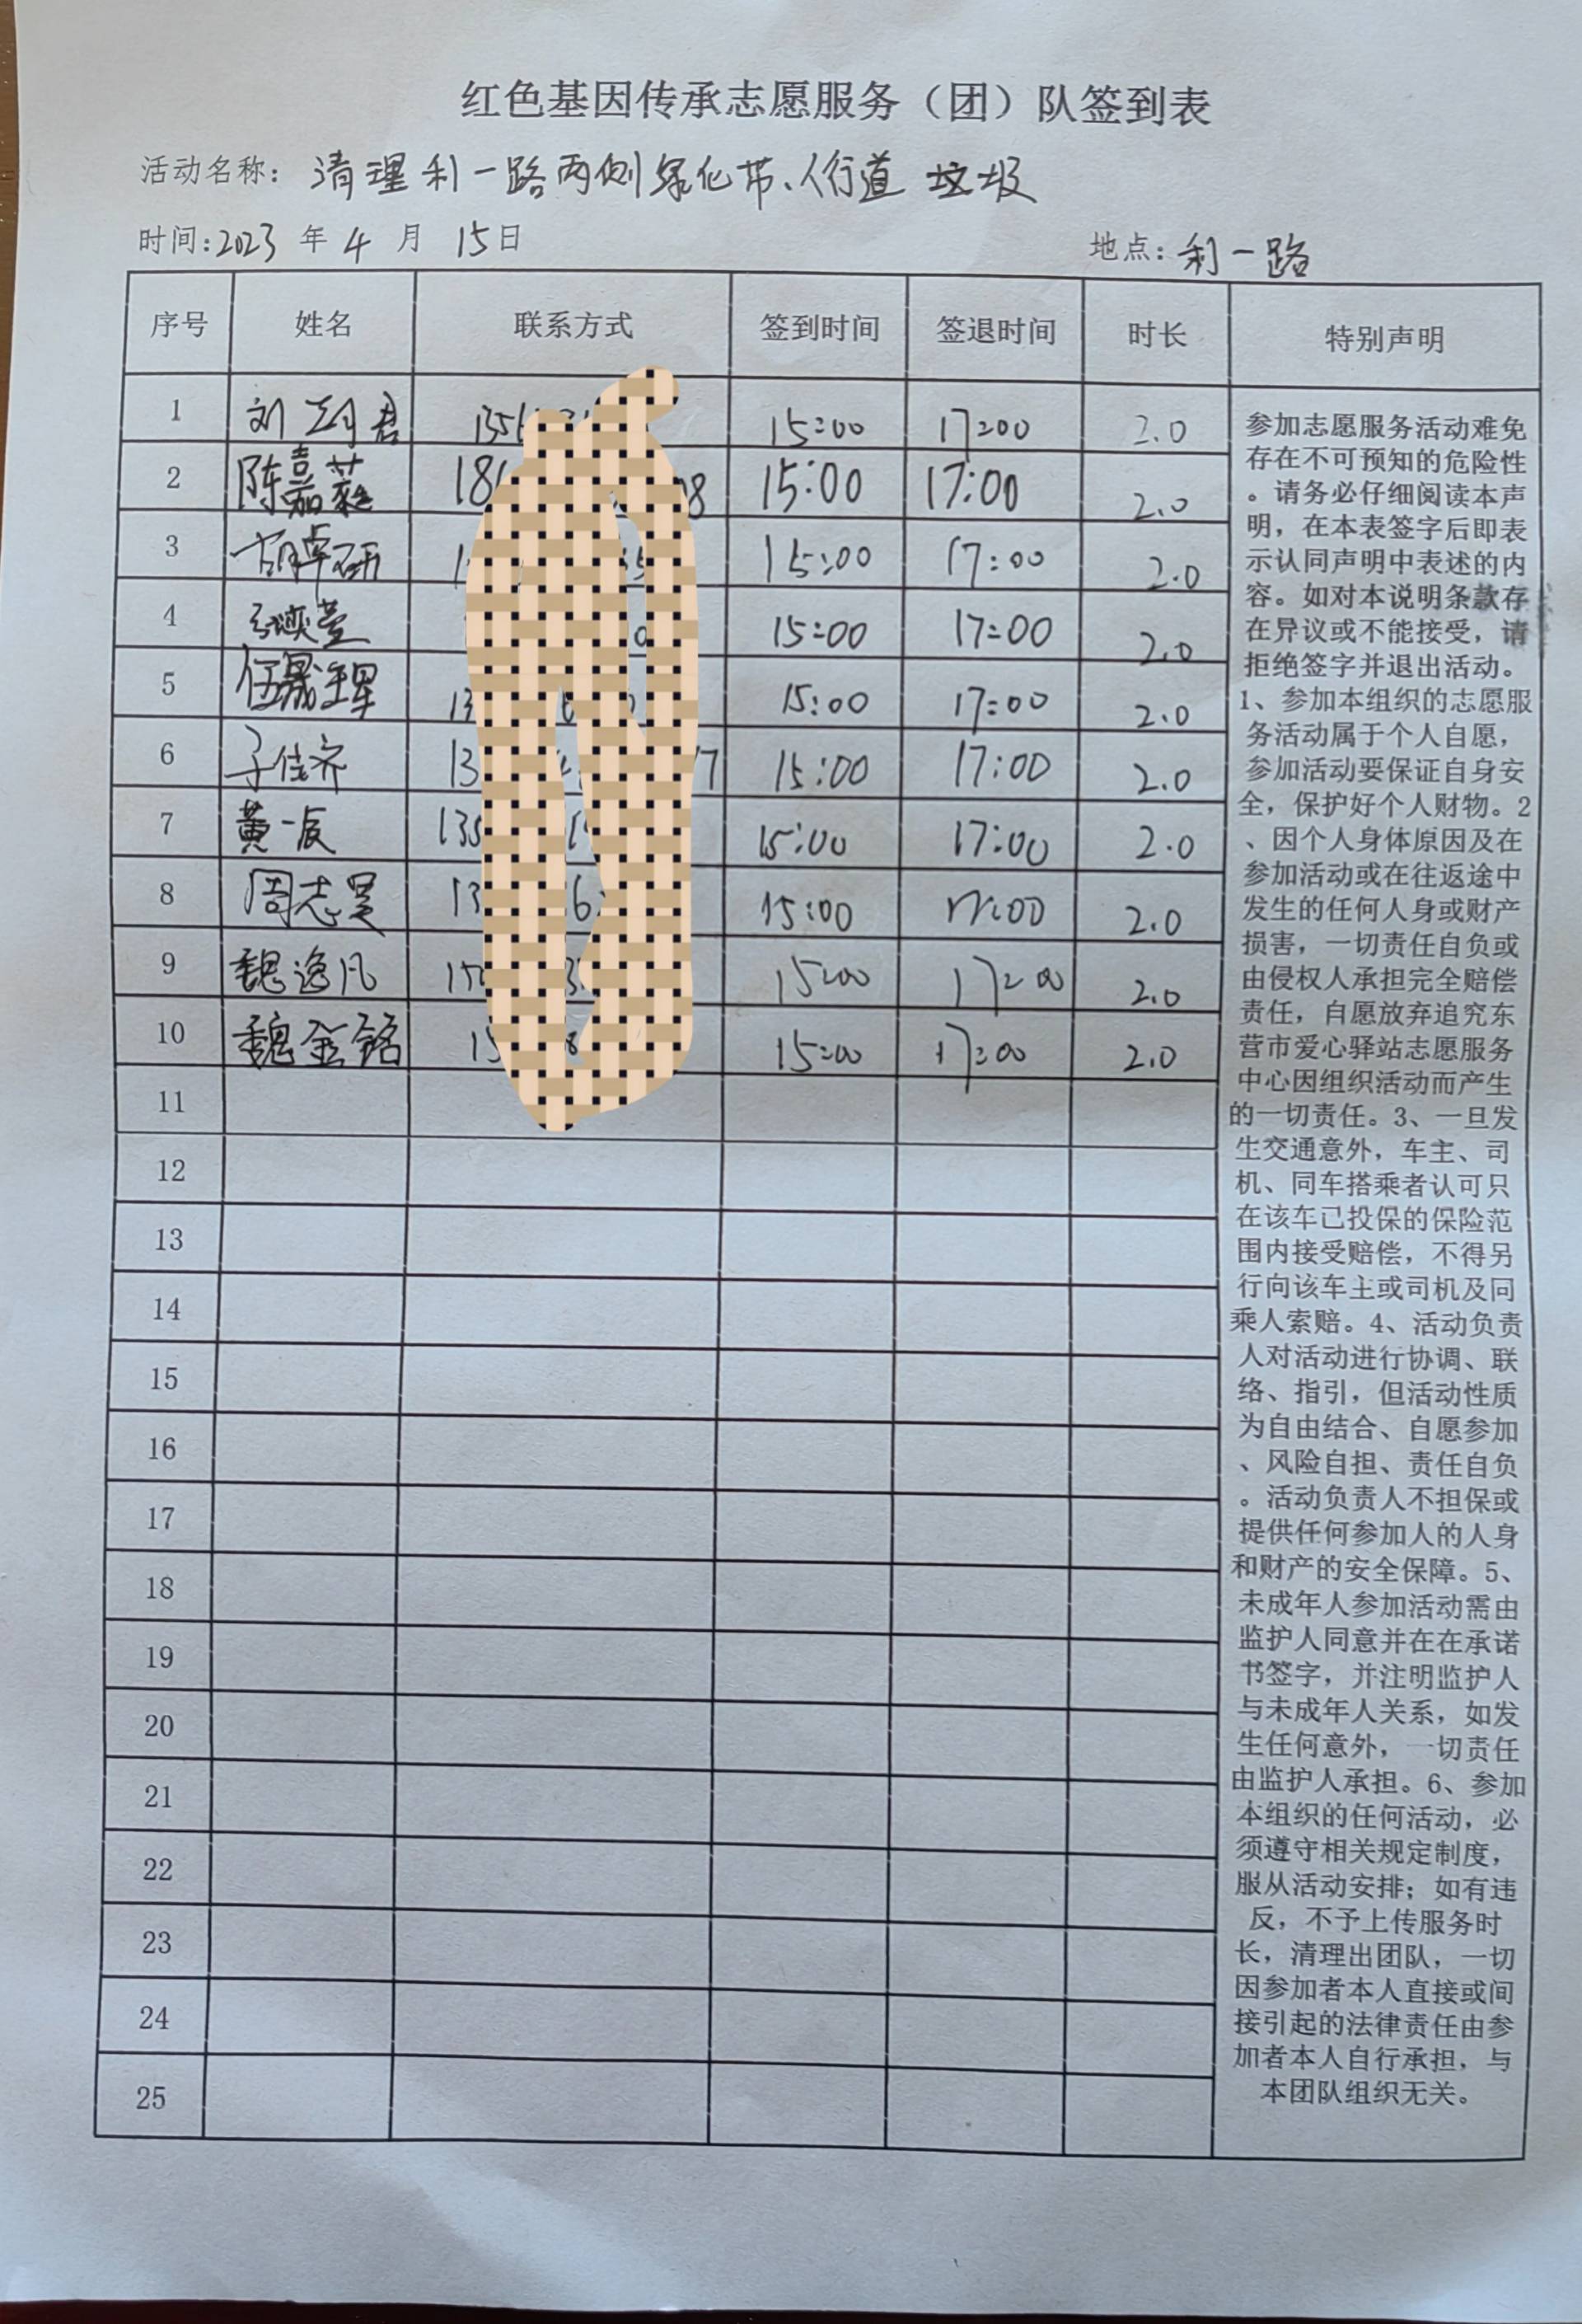 红色基因传承志愿服务（团）队签到表
活动名称：清理利一路两侧绿化带、人行道垃圾
时间：2023 年 4 月 15日 地点：利一路
序号 姓名 联系方式 签到时间 签退时间 时长 特别声明
1 刘 君 15:00 17:00 2.0
2 陈嘉蕤 18 08 15:00 17:00 2.0
3 胡卓研 15:00 17:00 2.0
4 15:00 17:00 2.0
5 伍晟 13 15:00 17:00 2.0
6 佳齐 13 17 15:00 17:00 2.0
7 黄一辰 135 15:00 17:00 2.0
8 周志昊 13 6 15:00 17:00 2.0
9 魏逸凡 15 15:00 17:00 2.0
10 魏金铭 15 8 15:00 17:00 2.0
11
12
13
14
15
16
17
18
19
20
21
22
23
24
25
参加志愿服务活动难免
存在不可预知的危险性
。请务必仔细阅读本声
明，在本表签字后即表
示认同声明中表述的内
容。如对本说明条款存
在异议或不能接受，请
拒绝签字并退出活动。
1、参加本组织的志愿服
务活动属于个人自愿，
参加活动要保证自身安
全，保护好个人财物。2
、因个人身体原因及在
参加活动或在往返途中
发生的任何人身或财产
损害，一切责任自负或
由侵权人承担完全赔偿
责任，自愿放弃追究东
营市爱心驿站志愿服务
中心因组织活动而产生
的一切责任。3、一旦发
生交通意外，车主、司
机、同车搭乘者认可只
在该车已投保的保险范
围内接受赔偿，不得另
行向该车主或司机及同
乘人索赔。4、活动负责
人对活动进行协调、联
络、指引，但活动性质
为自由结合、自愿参加
、风险自担、责任自负
。活动负责人不担保或
提供任何参加人的人身
和财产的安全保障。5、
未成年人参加活动需由
监护人同意并在在承诺
书签字，并注明监护人
与未成年人关系，如发
生任何意外，一切责任
由监护人承担。6、参加
本组织的任何活动，必
须遵守相关规定制度，
服从活动安排；如有违
反，不予上传服务时
长，清理出团队，一切
因参加者本人直接或间
接引起的法律责任由参
加者本人自行承担，与
本团队组织无关。